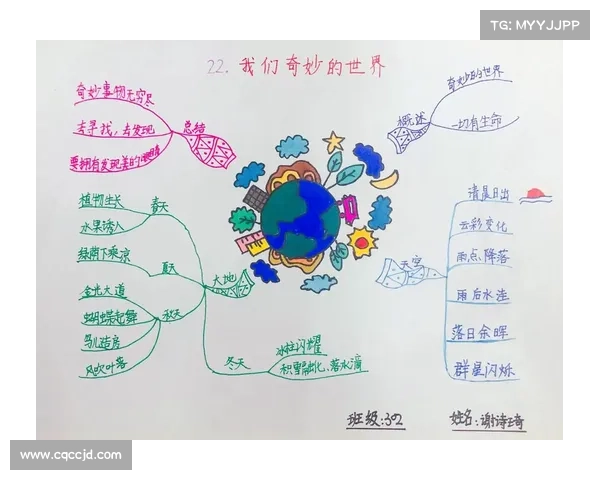 TG: MYYJJPP
22. 我们奇妙的世界
奇妙事物无穷尽
去寻找，去发现
要拥有发现美的眼睛
总结
概述
奇妙的世界
一切有生命
植物生长
水果诱人
春天
绿荫下乘凉
夏天
金光大道
蝴蝶起舞
鸟儿造房
风吹叶落
秋天
大地
冬天
冰柱闪耀
积雪融化、落水滴
天空
清晨日出
云彩变化
雨点降落
雨后水洼
落日余晖
群星闪烁
班级:302
姓名:谢诗琦
www.cqccjd.com